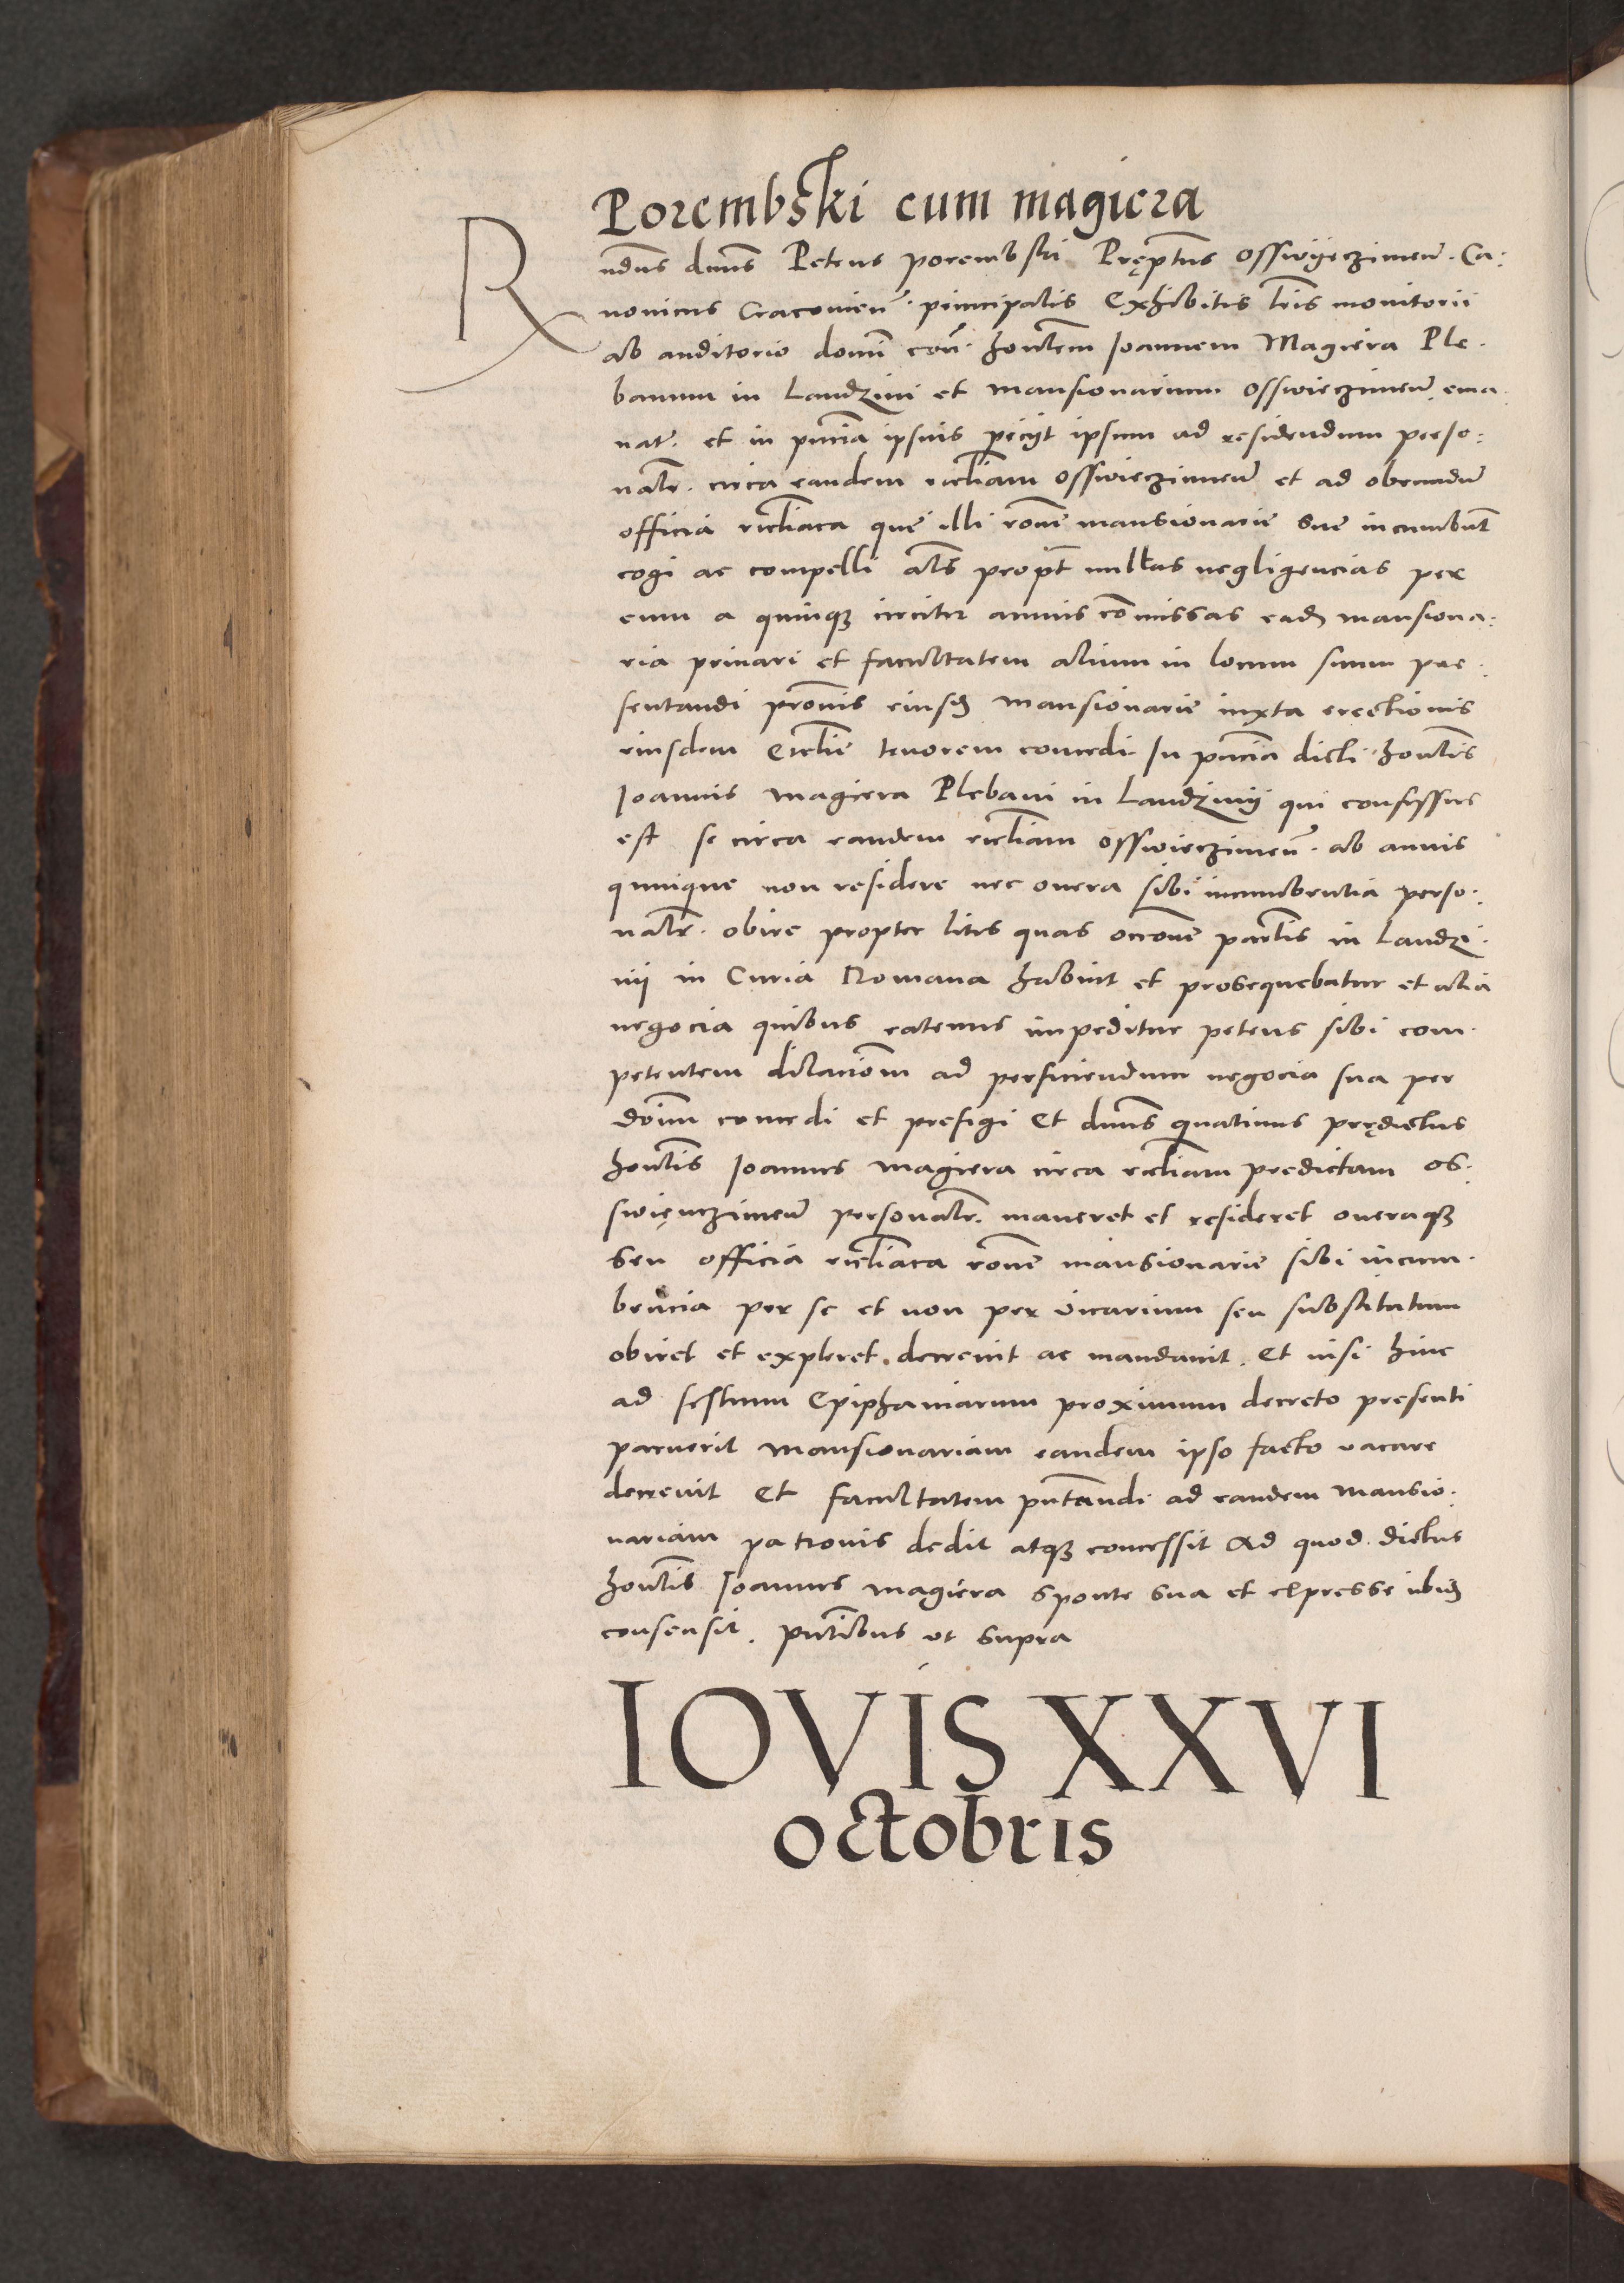 Porembski cum magiera
Rndus dnus Petrus porembski Pręptus Osswijeczimen̄. Ca:
nonicus Cracovien̄. principalis Exhibitis lr̄is monitorii
ab auditorio domī con̄. hon̄tem Joannem Magiera Ple.
banum in Landzini et mansionarium Osswieczimen̄ ema.
nat̄. et in pn̄cia ipsius peciit ipsum ad residendum perso:
nalr̄. circa eandem eccl̄iam Osswieczimen̄ et ad obeundū
officia eccl̄iatca que illi rōne mansionarie sue incumbūt
cogi ac compelli al̄s propt̄ nullas negligencias per
eum a quinqȝ circiter annis cōmissas eadē mansiona:
ria privari et facultatem alium in locum suum pre.
sentandi prōnis eiusdē mansionarie iuxta erectionis
eiusdem Eccl̄ie tenorem concedi. In pn̄cia dicti hon̄lis
Joannis Magiera Plebani in Landzinij qui confessus
est se circa eandem eccl̄iam Osswieczimen̄. ab annis
quinque non residere nec onera sibi incumbentia perso:
nalr̄. obire propter lites quas occōne par̄lis in Landzi.
nij in Curia Romana habuit et prosequebatur et alia
negocia quibus eatenus impeditur petens sibi com.
petentem dilaciōem ad perficiendum negocia sua per
doīum concedi et prefigi Et dnūs quatinus prędictus
hon̄lis Joannes magiera circa eccl̄iam predictam Os.
swięnczimen̄ personalr̄. maneret et resideret oneraqȝ
seu officia eccl̄iatca rōne mansionarie sibi incum.
bencia per se et non per vicarium seu substitutum
obiret et expleret. decrevit ac mandavit. Et nisi hinc
ad festum Epiphaniarum proximum decreto presenti
paruerit mansionariam eandem ipso facto vacare
decrevit Et facultatem pn̄tandi ad eandem mansio.
nariam patronis dedit atqȝ concessit Ad quod dictus
hon̄lis Joannes magiera sponte sua et expresse ibidē
consensit. pn̄tibus ut supra
IOVIS XXVI
octobris